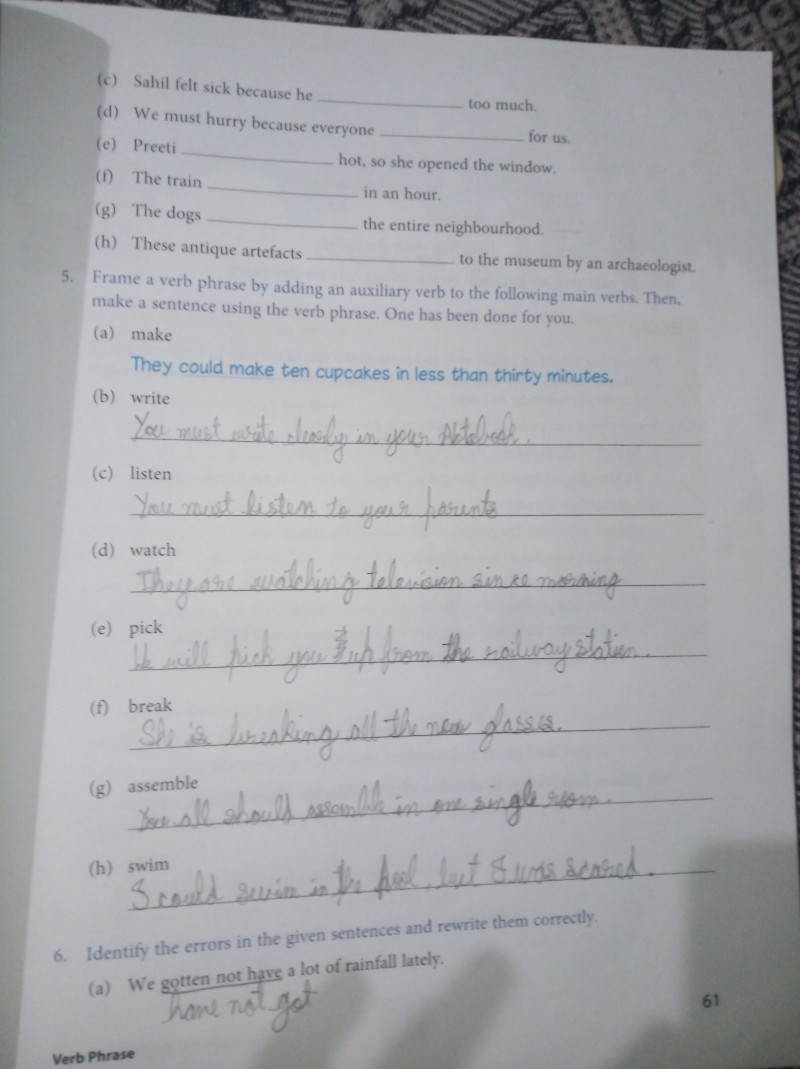 (c) Sahil felt sick because he ____________ too much.
(d) We must hurry because everyone ____________ for us.
(e) Preeti ____________ hot, so she opened the window.
(f) The train ____________ in an hour.
(g) The dogs ____________ the entire neighbourhood.
(h) These antique artefacts ____________ to the museum by an archaeologist.
5. Frame a verb phrase by adding an auxiliary verb to the following main verbs. Then,
make a sentence using the verb phrase. One has been done for you.
(a) make
They could make ten cupcakes in less than thirty minutes.
(b) write
You must write clearly in your Notebook.
(c) listen
You must listen to your parents
(d) watch
They are watching television since morning
(e) pick
We will pick you up from the railway station.
(f) break
She is breaking all the new glasses.
(g) assemble
You all should assemble in one single room.
(h) swim
I could swim in the pool, but I was scared.
6. Identify the errors in the given sentences and rewrite them correctly.
(a) We gotten not have a lot of rainfall lately.
have not got
61
Verb Phrase